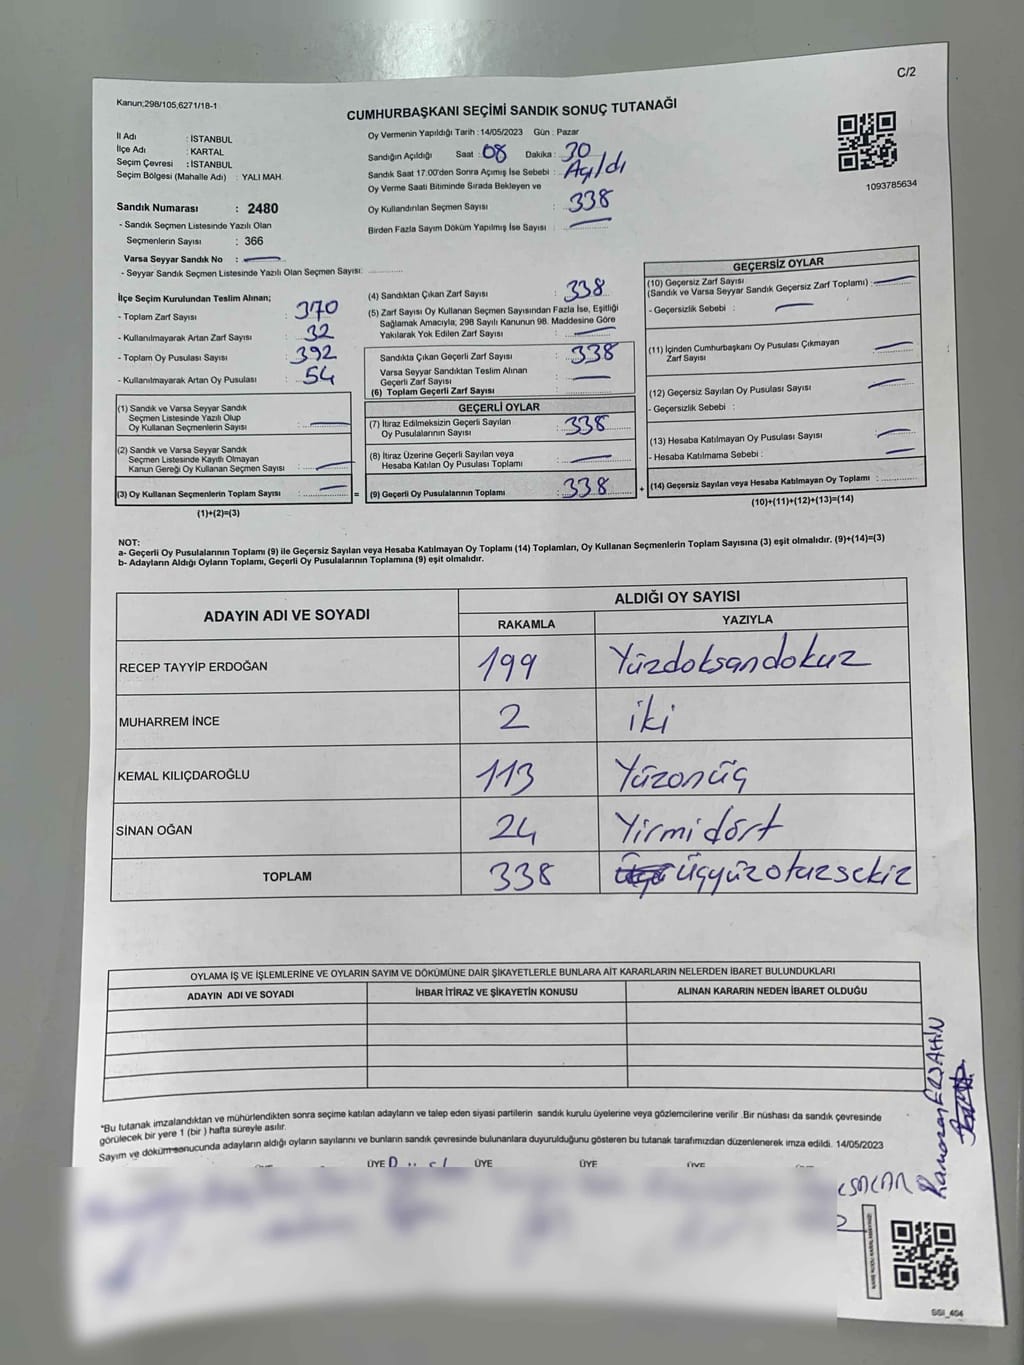 C/2
Kanun;298/105,6271/18-1
CUMHURBAŞKANI SEÇİMİ SANDIK SONUÇ TUTANAĞI
İl Adı : İSTANBUL
İlçe Adı : KARTAL
Seçim Çevresi : İSTANBUL
Seçim Bölgesi (Mahalle Adı) : YALI MAH.
Sandık Numarası : 2480
- Sandık Seçmen Listesinde Yazılı Olan
Seçmenlerin Sayısı : 366
Varsa Seyyar Sandık No :
- Seyyar Sandık Seçmen Listesinde Yazılı Olan Seçmen Sayısı:
Oy Vermenin Yapıldığı Tarih : 14/05/2023 Gün : Pazar
Sandığın Açıldığı Saat : 08 Dakika : 30
Sandık Saat 17.00'den Sonra Açımış İse Sebebi : Açıldı
Oy Verme Saati Bitiminde Sırada Bekleyen ve
Oy Kullandırılan Seçmen Sayısı : 338
Birden Fazla Sayım Döküm Yapılmış İse Sayısı :
1093785634
İlçe Seçim Kurulundan Teslim Alınan;
- Toplam Zarf Sayısı : 370
- Kullanılmayarak Artan Zarf Sayısı : 32
- Toplam Oy Pusulası Sayısı : 392
- Kullanılmayarak Artan Oy Pusulası : 54
(1) Sandık ve Varsa Seyyar Sandık
Seçmen Listesinde Yazılı Olup
Oy Kullanan Seçmenlerin Sayısı :
(2) Sandık ve Varsa Seyyar Sandık
Seçmen Listesinde Kayıtlı Olmayan
Kanun Gereği Oy Kullanan Seçmen Sayısı :
(3) Oy Kullanan Seçmenlerin Toplam Sayısı :
(1)+(2)=(3)
(4) Sandıktan Çıkan Zarf Sayısı : 338
(5) Zarf Sayısı Oy Kullanan Seçmen Sayısından Fazla İse, Eşitliği
Sağlamak Amacıyla; 298 Sayılı Kanunun 98. Maddesine Göre
Yakılarak Yok Edilen Zarf Sayısı :
Sandıkta Çıkan Geçerli Zarf Sayısı : 338
Varsa Seyyar Sandıktan Teslim Alınan
Geçerli Zarf Sayısı :
(6) Toplam Geçerli Zarf Sayısı :
GEÇERLİ OYLAR
(7) İtiraz Edilmeksizin Geçerli Sayılan
Oy Pusulalarının Sayısı : 338
(8) İtiraz Üzerine Geçerli Sayılan veya
Hesaba Katılan Oy Pusulası Toplamı :
= (9) Geçerli Oy Pusulalarının Toplamı : 338 +
GEÇERSİZ OYLAR
(10) Geçersiz Zarf Sayısı
(Sandık ve Varsa Seyyar Sandık Geçersiz Zarf Toplamı) :
- Geçersizlik Sebebi :
(11) İçinden Cumhurbaşkanı Oy Pusulası Çıkmayan
Zarf Sayısı :
(12) Geçersiz Sayılan Oy Pusulası Sayısı :
- Geçersizlik Sebebi :
(13) Hesaba Katılmayan Oy Pusulası Sayısı :
- Hesaba Katılmama Sebebi :
(14) Geçersiz Sayılan veya Hesaba Katılmayan Oy Toplamı :
(10)+(11)+(12)+(13)=(14)
NOT:
a- Geçerli Oy Pusulalarının Toplamı (9) ile Geçersiz Sayılan veya Hesaba Katılmayan Oy Toplamı (14) Toplamları, Oy Kullanan Seçmenlerin Toplam Sayısına (3) eşit olmalıdır. (9)+(14)=(3)
b- Adayların Aldığı Oyların Toplamı, Geçerli Oy Pusulalarının Toplamına (9) eşit olmalıdır.
ADAYIN ADI VE SOYADI ALDIĞI OY SAYISI
RAKAMLA YAZIYLA
RECEP TAYYİP ERDOĞAN 199 Yüzdoksandokuz
MUHARREM İNCE 2 iki
KEMAL KILIÇDAROĞLU 113 Yüzonüç
SİNAN OĞAN 24 Yirmidört
TOPLAM 338 Üçyüzotuzsekiz
OYLAMA İŞ VE İŞLEMLERİNE VE OYLARIN SAYIM VE DÖKÜMÜNE DAİR ŞİKAYETLERLE BUNLARA AİT KARARLARIN NELERDEN İBARET BULUNDUKLARI
ADAYIN ADI VE SOYADI İHBAR İTİRAZ VE ŞİKAYETİN KONUSU ALINAN KARARIN NEDEN İBARET OLDUĞU
"Bu tutanak imzalandıktan ve mühürlendikten sonra seçime katılan adayların ve talep eden siyasi partilerin sandık kurulu üyelerine veya gözlemcilerine verilir .Bir nüshası da sandık çevresinde
görülecek bir yere 1 (bir ) hafta süreyle asılır.
Sayım ve döküm sonucunda adayların aldığı oyların sayılarını ve bunların sandık çevresinde bulunanlara duyurulduğunu gösteren bu tutanak tarafımızdan düzenlenerek imza edildi. 14/05/2023
ÜYE ÜYE ÜYE ÜYE
Ramazan ERŞAHİN
SSI_404